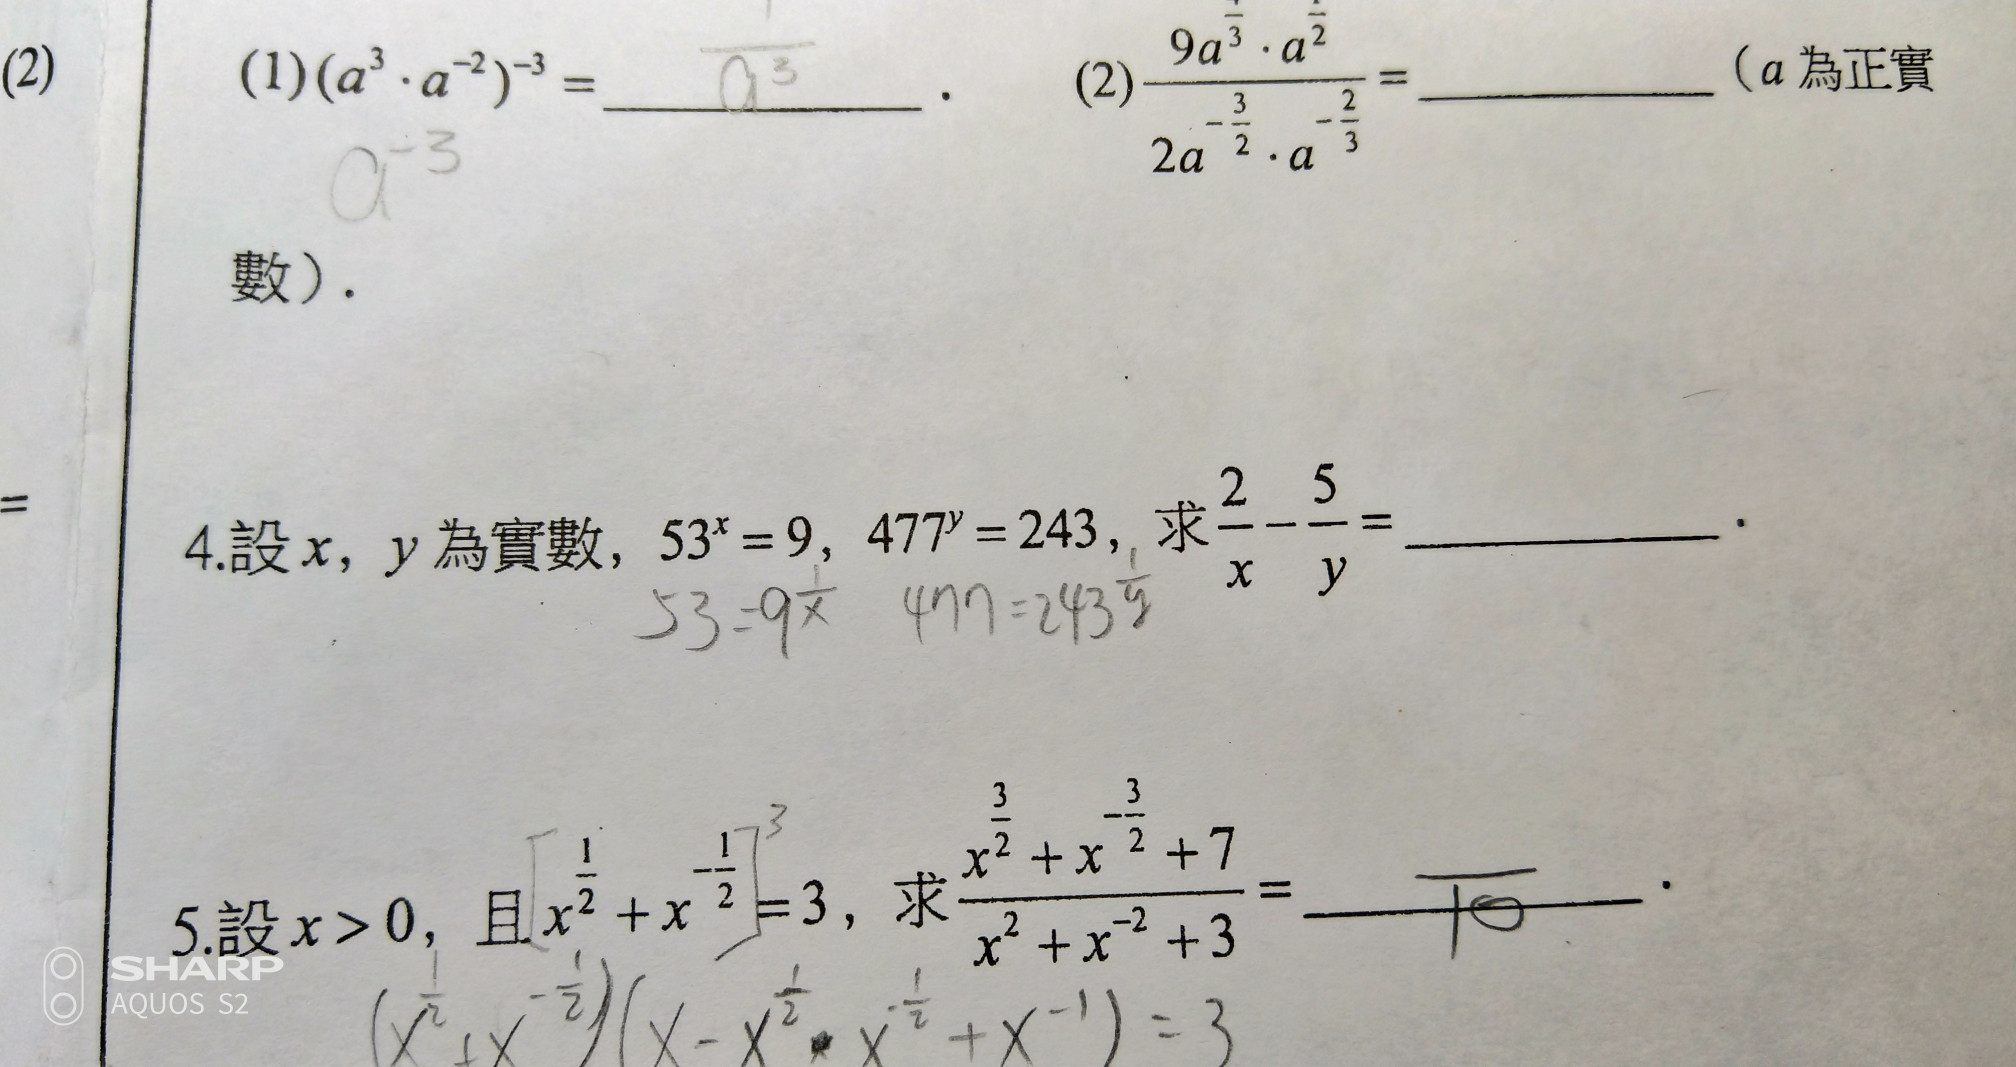 (2) (1)(a³·a⁻²)⁻³ = 1/a³ . (2) (9a^(4/3)·a^(1/2))/(2a^(-3/2)·a^(-2/3)) = ________ (a 為正實
a⁻³
數).
=
4.設 x, y 為實數, 53ˣ = 9, 477ʸ = 243, 求 2/x − 5/y = ________ .
53=9^(1/x) 477=243^(1/y)
5.設 x > 0, 且 [x^(1/2) + x^(-1/2)]³ = 3, 求 (x^(3/2) + x^(-3/2) + 7)/(x² + x⁻² + 3) = /10 .
(x^(1/2) + x^(-1/2))(x − x^(1/2)·x^(-1/2) + x⁻¹) = 3
SHARP
AQUOS S2